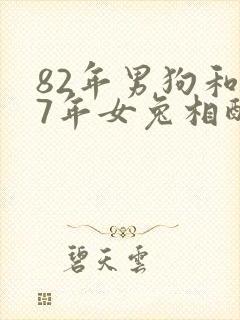 82年男狗和
7年女兔相配
碧天雲